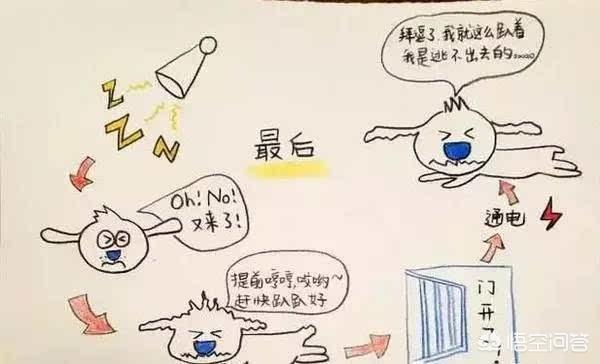 Z
Z
N
Oh! No!
又来了!
提前哼哼,哎哟~
赶快趴趴好
门开了!
通电
拜逗了,我就这么趴着
我是逃不出去的……
最后
悟空问答